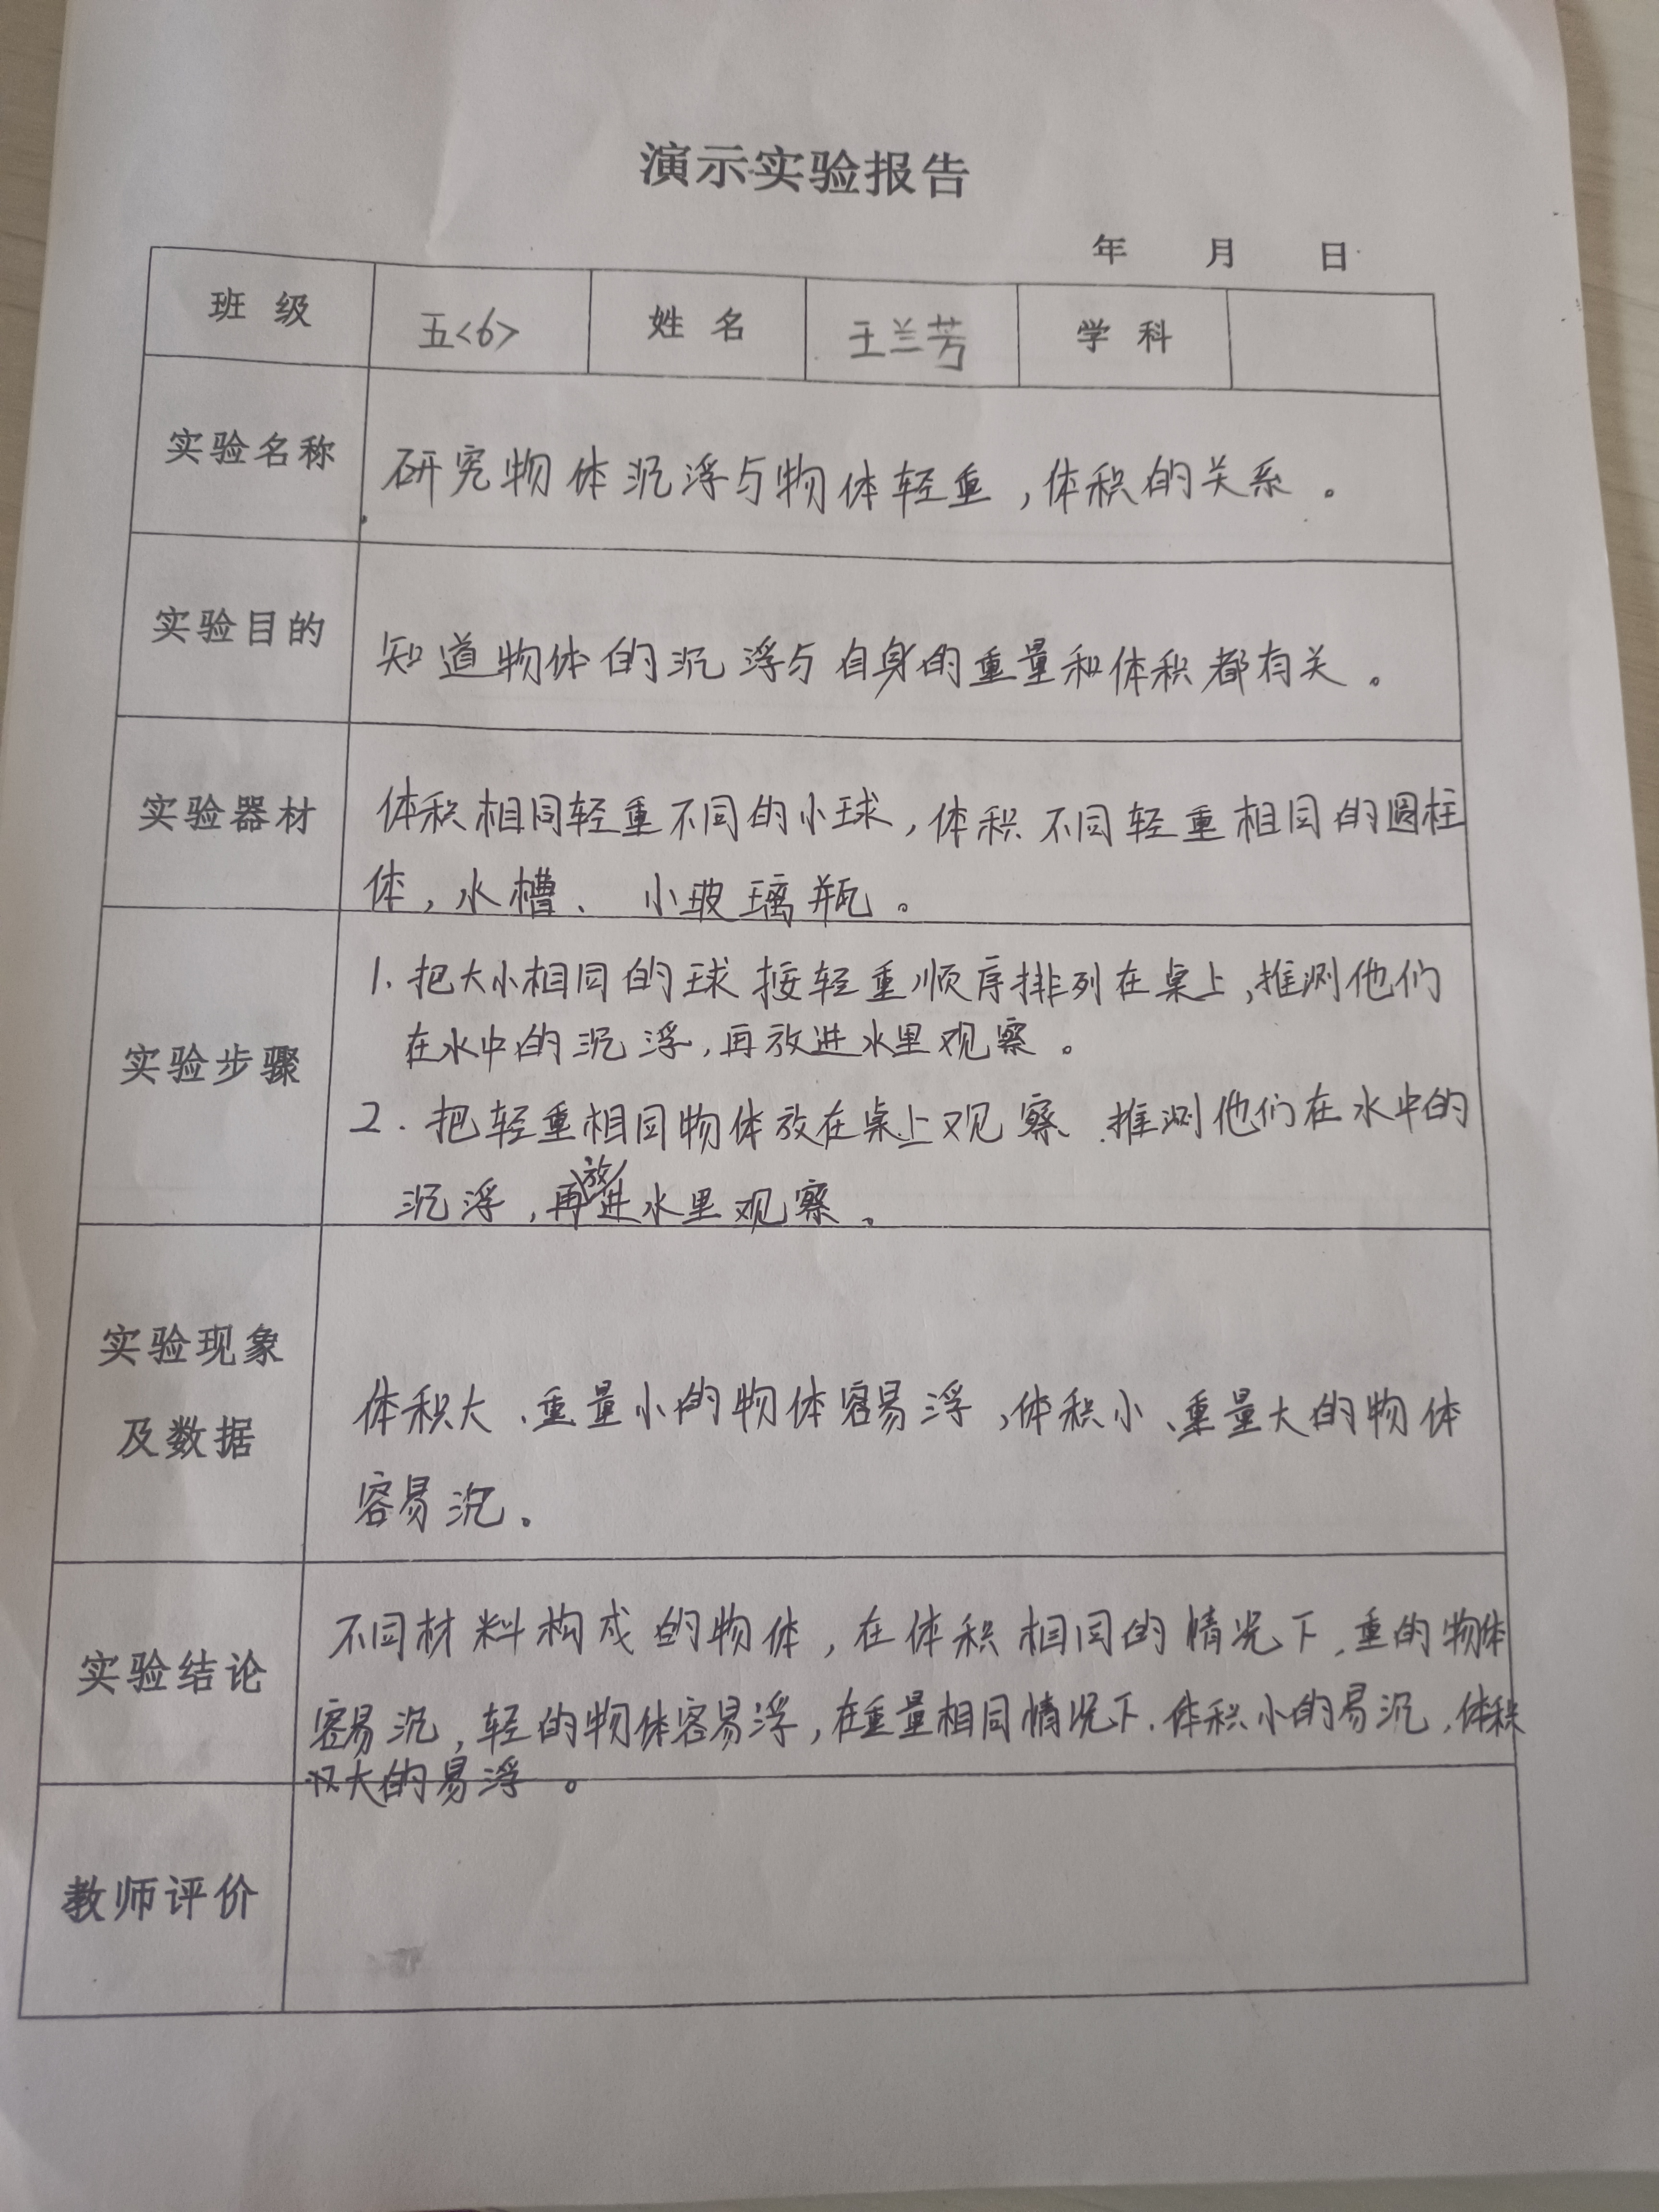 演示实验报告
年 月 日
班级 五<6> 姓名 王兰芳 学科
实验名称 研究物体沉浮与物体轻重，体积的关系。
实验目的 知道物体的沉浮与自身的重量和体积都有关。
实验器材 体积相同轻重不同的小球，体积不同轻重相同的圆柱
体，水槽、小玻璃瓶。
实验步骤
1.把大小相同的球按轻重顺序排列在桌上，推测他们
在水中的沉浮，再放进水里观察。
2.把轻重相同物体放在桌上观察、推测他们在水中的
沉浮，再放进水里观察。
实验现象
及数据
体积大、重量小的物体容易浮，体积小、重量大的物体
容易沉。
实验结论
不同材料构成的物体，在体积相同的情况下，重的物体
容易沉，轻的物体容易浮，在重量相同情况下，体积小的易沉，体积
大的易浮。
教师评价